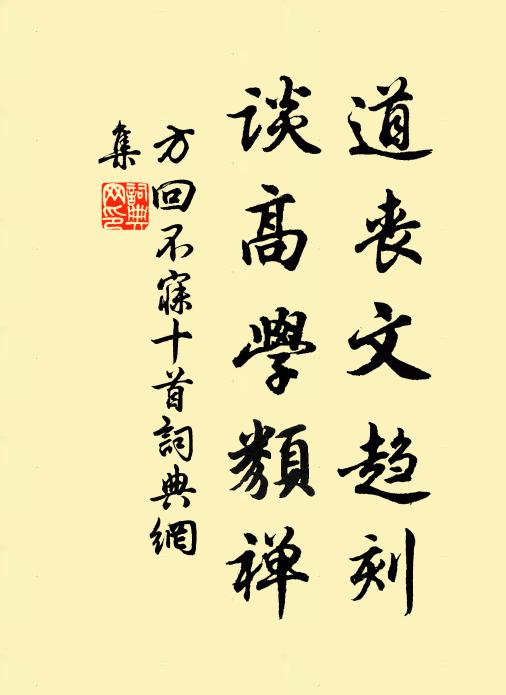 道丧文趋刻
谈高学類禅
方回不寐十首詞典網
集
詞典網印